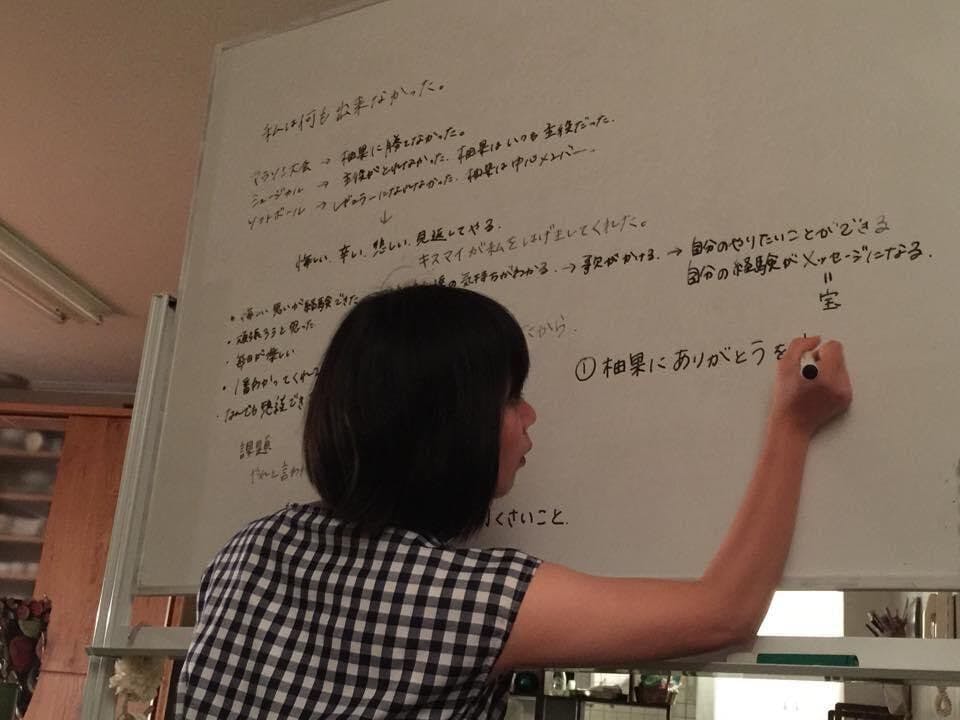 私は何も出来なかった。
マラソン大会 → 柚果に勝てなかった。
ミュージカル → 主役がとれなかった. 柚果はいつも主役だった.
ソフトボール → レギュラーになれなかった. 柚果は中心メンバー.
↓
悔しい. 辛い. 悲しい. 見返してやる.
キスマイが私をはげましてくれた。
・悔しい思いが経験できた 気持ちがわかる. → 歌がかける. → 自分のやりたいことができる
自分の経験がメッセージになる.
〃
宝
・頑張ろうと思った
・毎日が楽しい
だから.
①柚果にありがとうを
・なんでも
課題
やれと言わ
くさいこと.